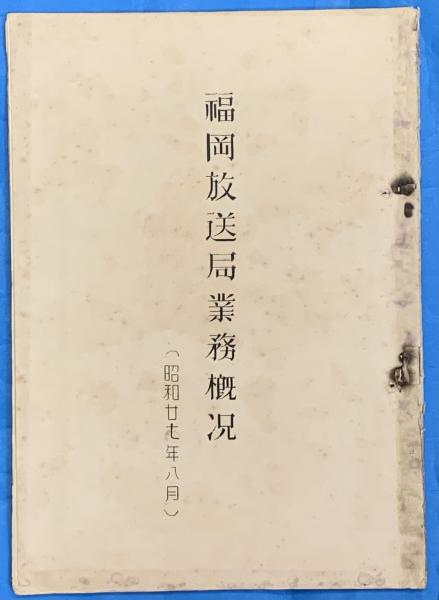 福岡放送局業務概況
（昭和廿七年八月）